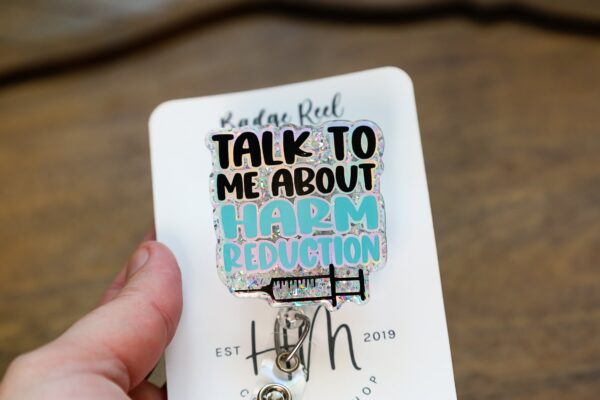 Badge Reel
TALK TO
ME ABOUT
HARM
REDUCTION
EST HM 2019